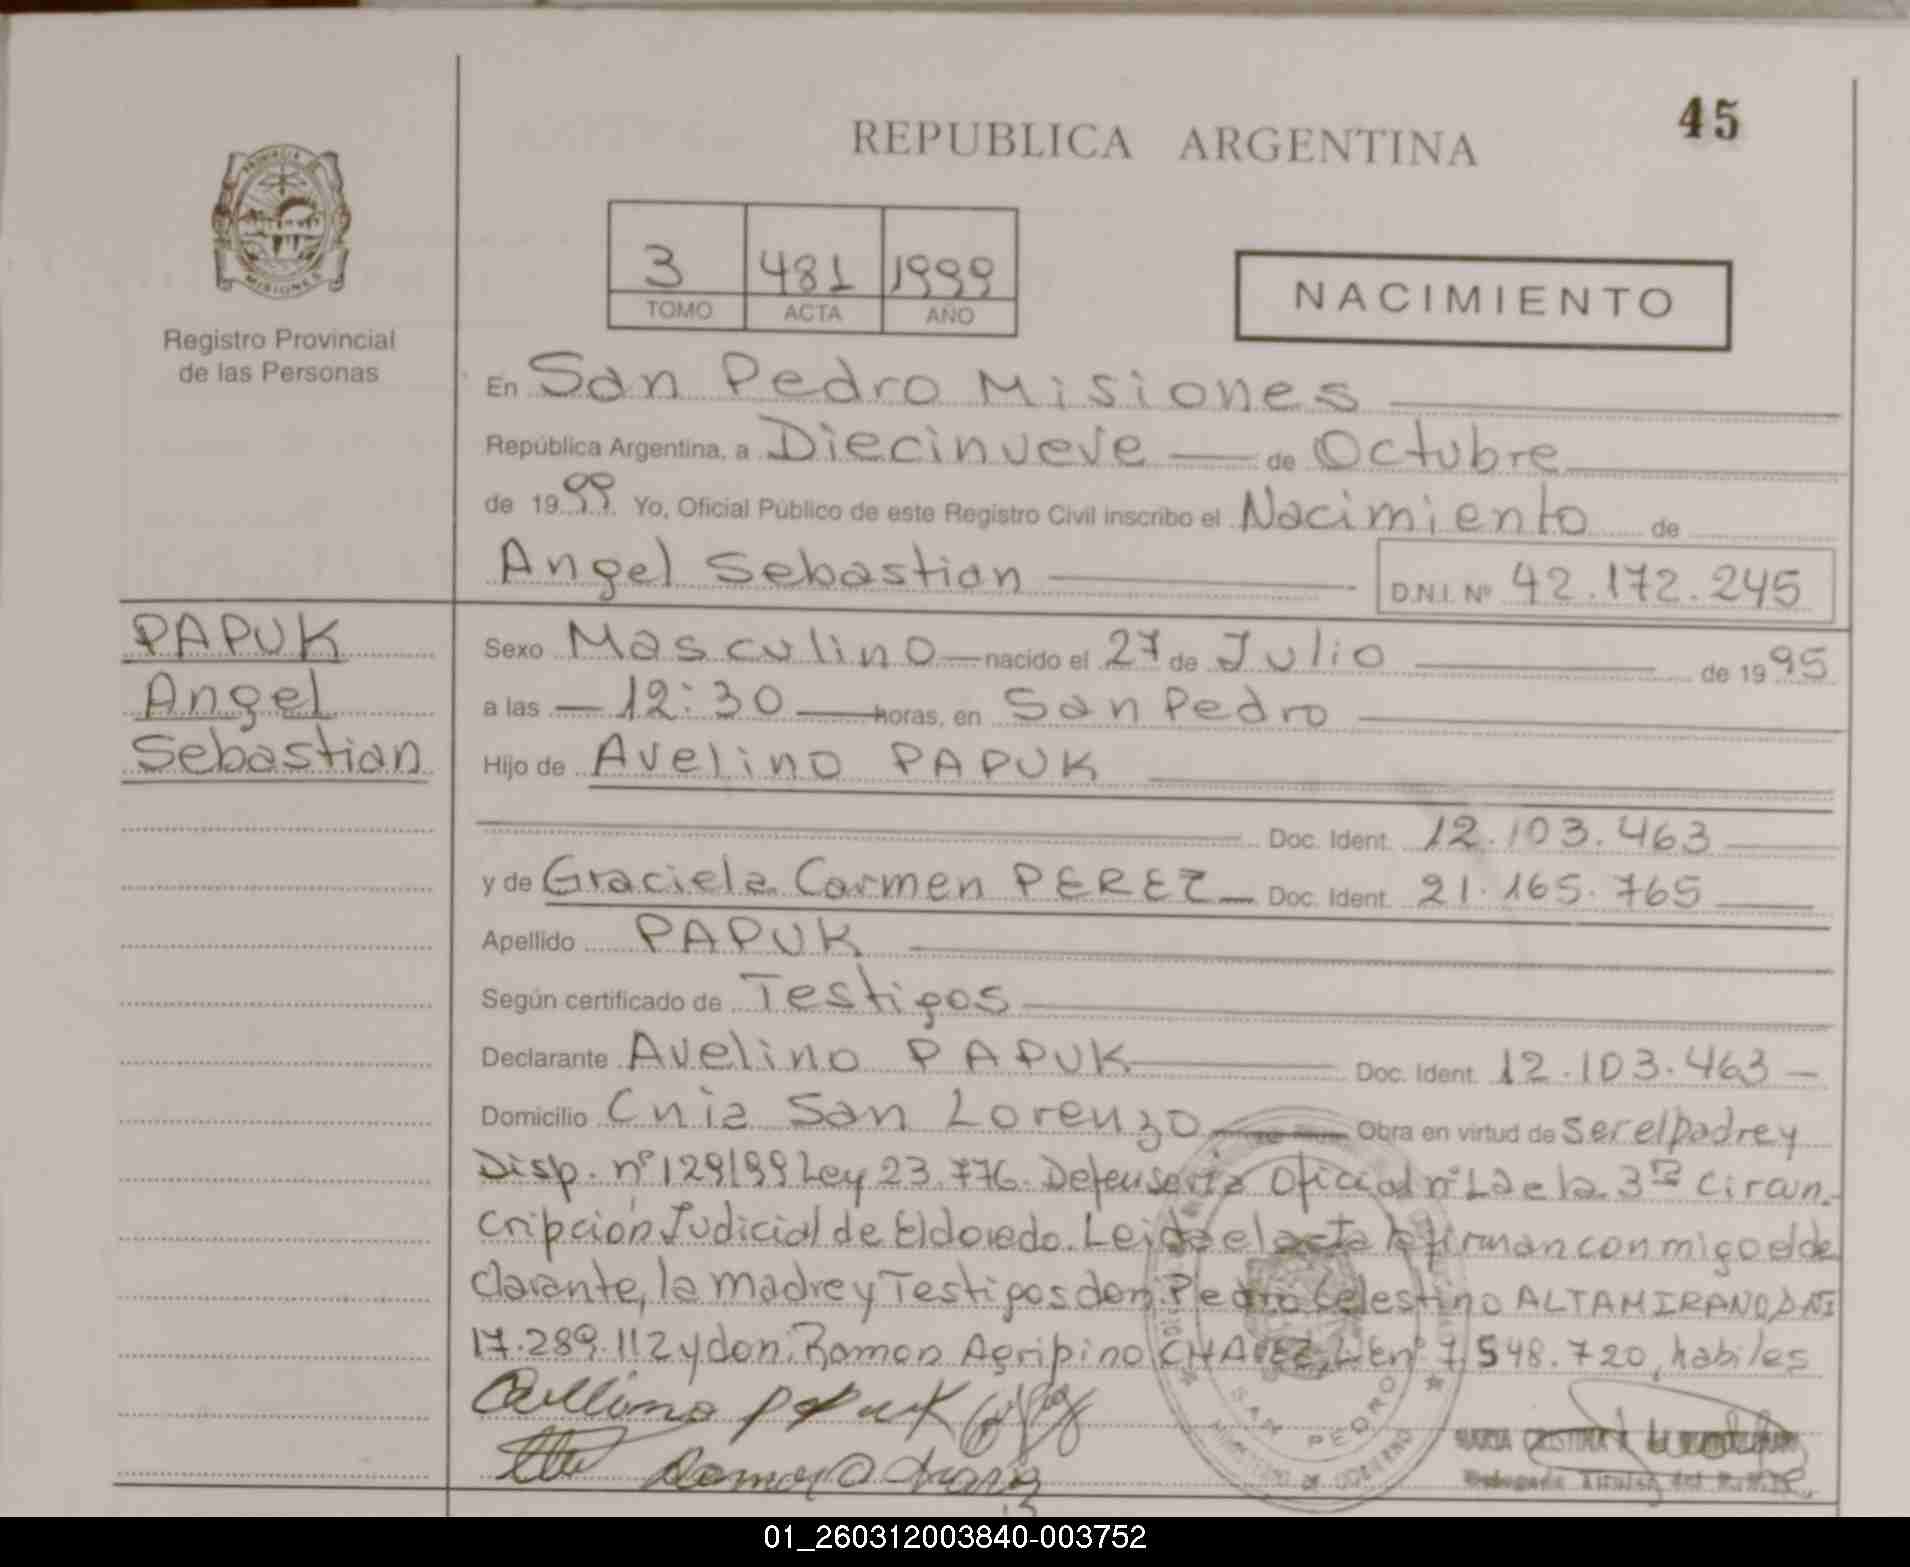 45
REPUBLICA ARGENTINA
PROVINCIA DE
MISIONES
Registro Provincial
de las Personas
3 481 1999
TOMO ACTA AÑO
NACIMIENTO
En San Pedro Misiones
República Argentina, a Diecinueve de Octubre
de 1999 Yo, Oficial Público de este Registro Civil inscribo el Nacimiento de
Angel Sebastian D.N.I. Nº 42.172.245
PAPUK
Angel
Sebastian
Sexo Masculino nacido el 27 de Julio de 1995
a las 12:30 horas, en San Pedro
Hijo de Avelino PAPUK
Doc. Ident. 12.103.463
y de Graciela Carmen PEREZ Doc. Ident. 21.165.765
Apellido PAPUK
Según certificado de Testigos
Declarante Avelino PAPUK Doc. Ident. 12.103.463
Domicilio Cnia San Lorenzo Obra en virtud de ser el padre y
Disp. nº 129/99 Ley 23.776. Defensoria Oficial nº 1 de la 3ra Circun-
cripción Judicial de Eldorado. Leida el acta la firman conmigo el de
clarante, la madre y Testigos don: Pedro Celestino ALTAMIRANO DNI
17.289.112 y don: Ramon Agripino CHAVEZ, L.E nº 7.548.720, habiles
PAPUK
SAN PEDRO
MINISTERIO DE GOBIERNO
MARIA CRISTINA
Delegada Titular del
01_260312003840-003752